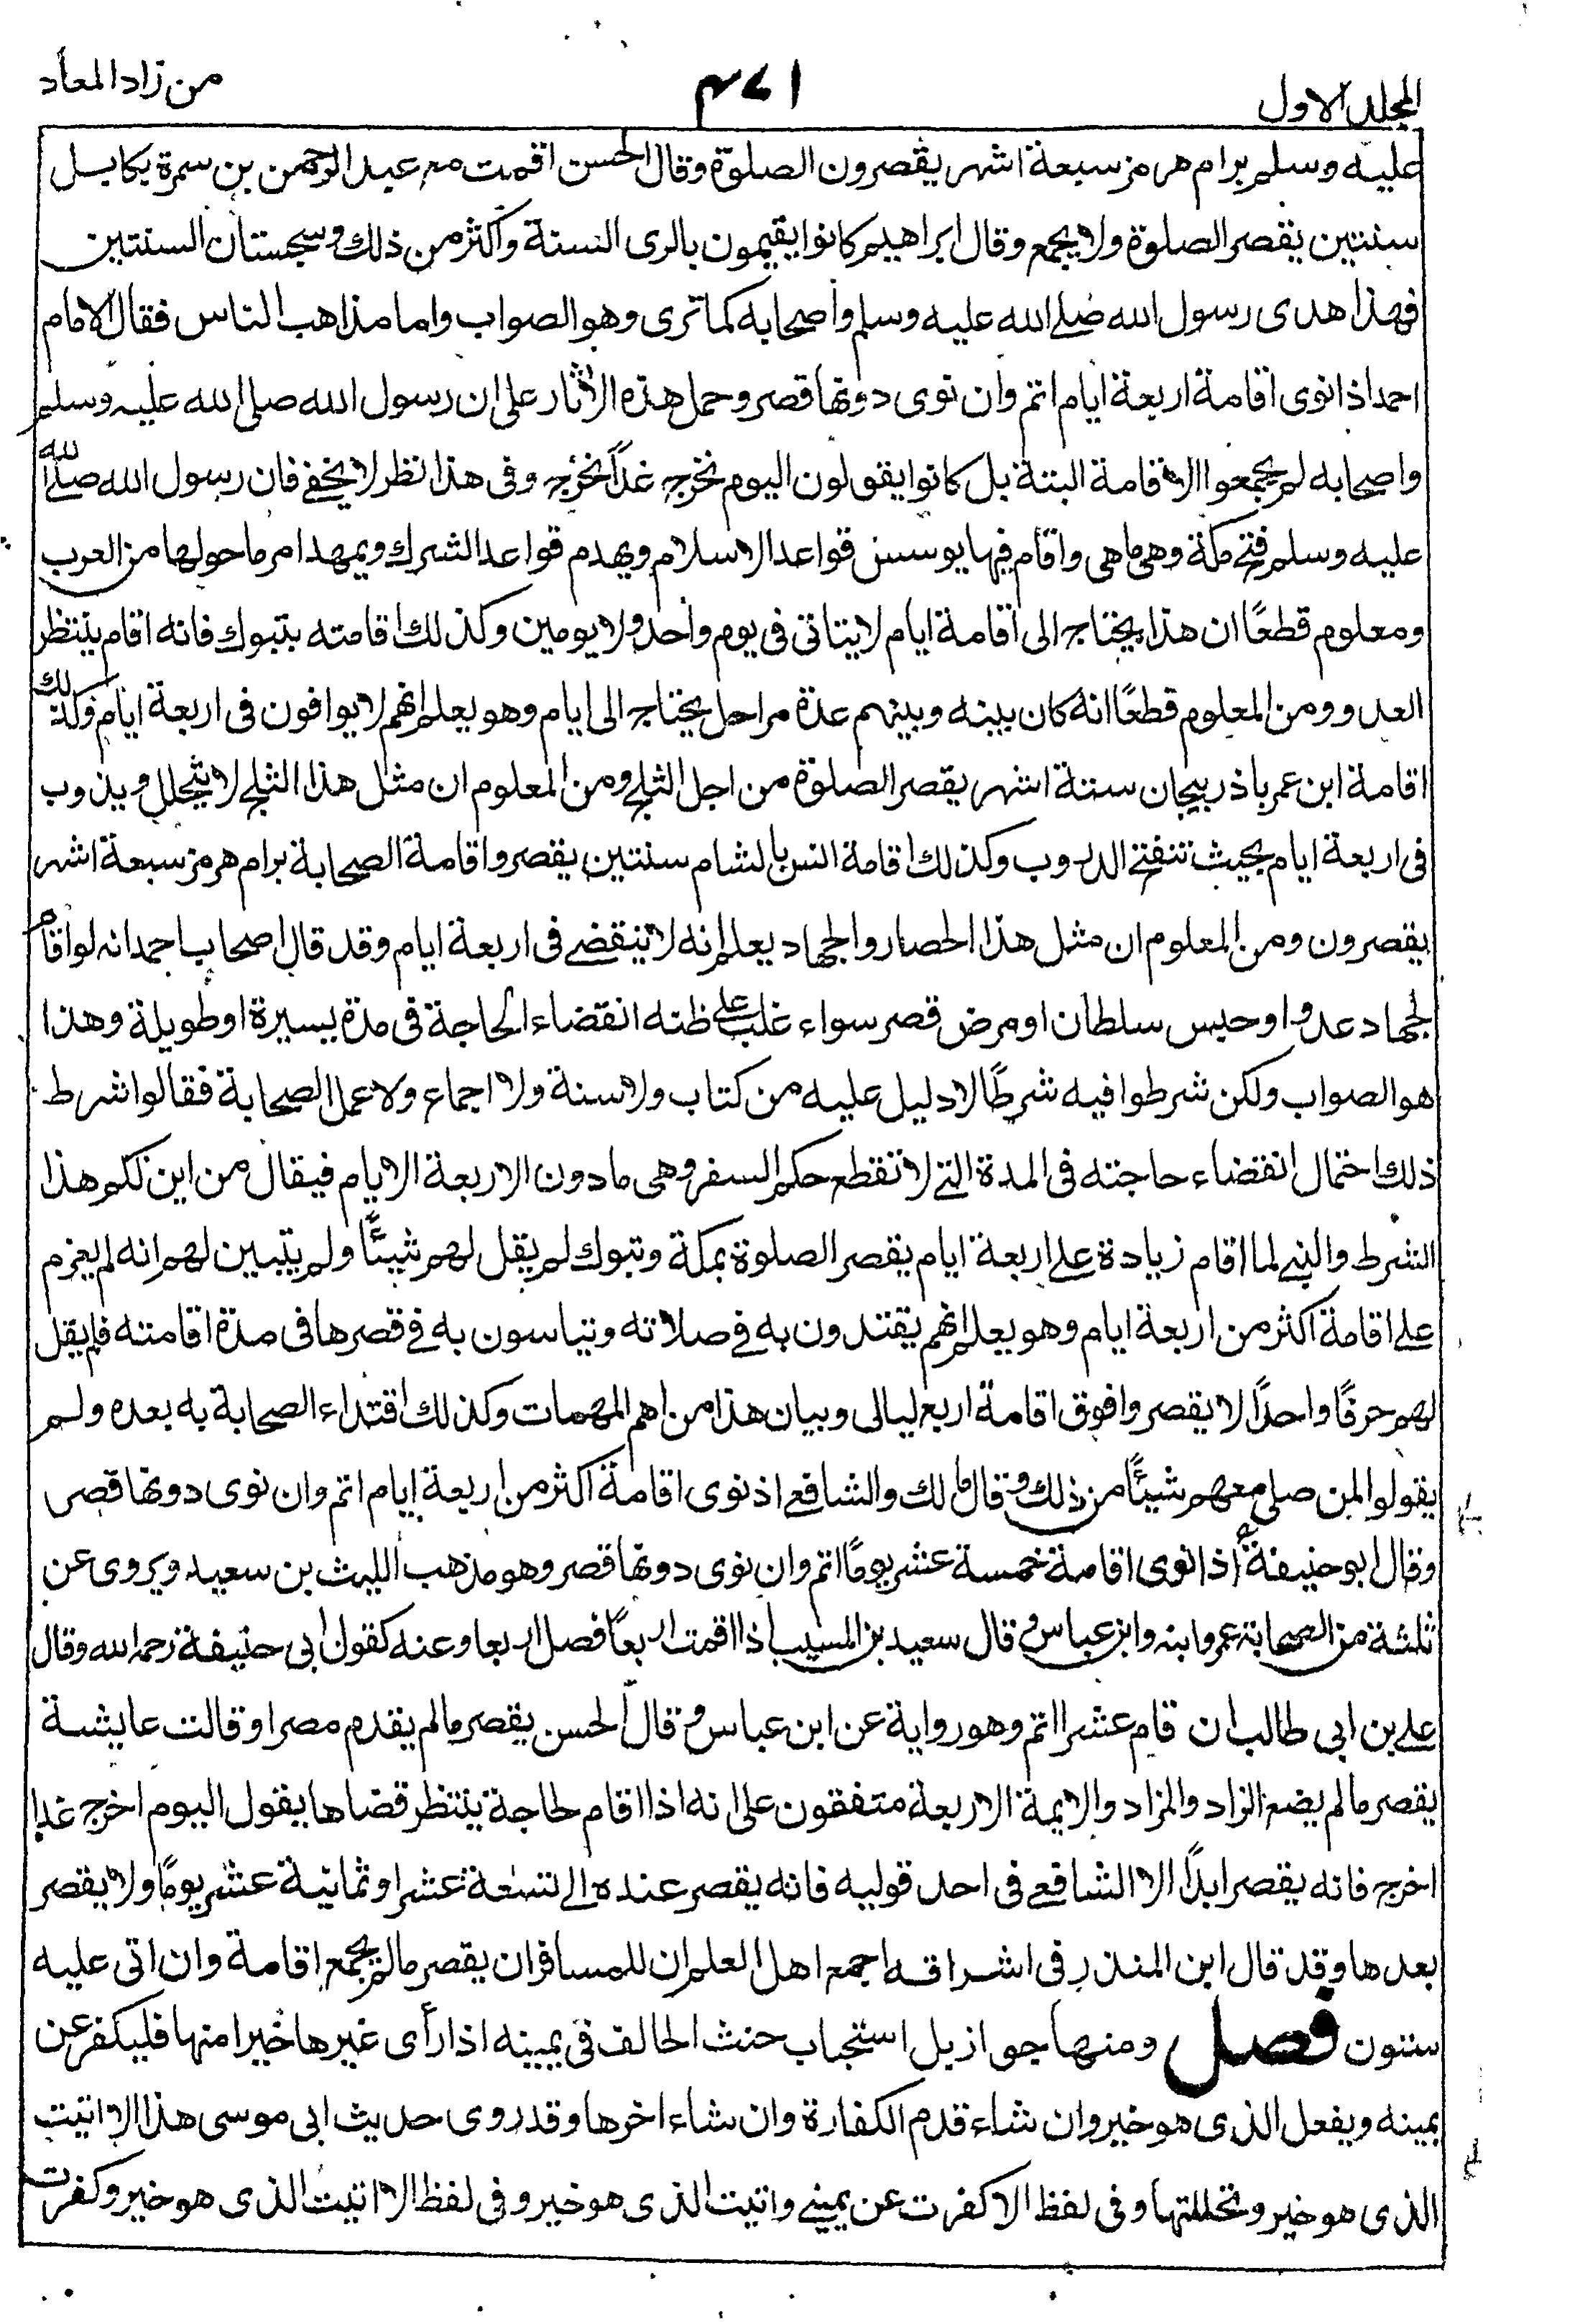 المجلد الاول
٤٧١
من زاد المعاد
عليه وسلم برام هرمز سبعة اشهر يقصرون الصلوة وقال الحسن اقمت مع عبد الرحمن بن سمرة بكابل
سنتين يقصر الصلوة ولا يجمع وقال ابراهيم كانوا يقيمون بالرى السنة واكثر من ذلك وسجستان السنتين
فهذا هدى رسول الله صلے الله عليه وسلم واصحابه كما ترى وهو الصواب واما مذاهب الناس فقال الامام
احمد اذا نوى اقامة اربعة ايام اتم وان نوى دونها قصر وحمل هذه الاثار على ان رسول الله صلى الله عليه وسلم
واصحابه لم يجمعوا الاقامة البتة بل كانوا يقولون اليوم نخرج غداً نخرج وفى هذا نظر لا يخفے فان رسول الله صلے الله
عليه وسلم فتح مكة وهى ما هى واقام فيها يوسس قواعد الاسلام ويهدم قواعد الشرك ويمهد امر ما حولها من العرب
ومعلوم قطعًا ان هذا يحتاج الى اقامة ايام لا يتاتى فى يوم واحد ولا يومين وكذلك اقامته بتبوك فانه اقام ينتظر
العدو ومن المعلوم قطعًا انه كان بينه وبينهم عدة مراحل يحتاج الى ايام وهو يعلم انهم لا يوافون فى اربعة ايام وكذلك
اقامة ابن عمر باذربيجان ستة اشهر يقصر الصلوة من اجل الثلج ومن المعلوم ان مثل هذا الثلج لا يتحلل ويذوب
فى اربعة ايام بحيث تنفتح الدروب وكذلك اقامة انس بالشام سنتين يقصر واقامة الصحابة برام هرمز سبعة اشهر
يقصرون ومن المعلوم ان مثل هذا الحصار والجهاد يعلم انه لا ينقضے فى اربعة ايام وقد قال اصحاب احمد انه لو اقام
لجهاد عدو او حبس سلطان او مرض قصر سواء غلب على ظنه انقضاء الحاجة فى مدة يسيرة او طويلة وهذا
هو الصواب ولكن شرطوا فيه شرطًا لا دليل عليه من كتاب ولا سنة ولا اجماع ولا عمل الصحابة فقالوا شرط
ذلك احتمال انقضاء حاجته فى المدة التے لا تقطع حكم السفر وهى ما دون الاربعة الايام فيقال من اين لكم هذا
الشرط والنبے لما اقام زيادة علے اربعة ايام يقصر الصلوة بمكة وتبوك لم يقل لهم شيئًا ولم يتبين لهم انه لم يعزم
علے اقامة اكثر من اربعة ايام وهو يعلم انهم يقتدون به فے صلاته ويتاسون به فے قصرها فى مدة اقامته فلم يقل
لهم حرفًا واحدًا لا يقصروا فوق اقامة اربع ليالى وبيان هذا من اهم المهمات وكذلك اقتداء الصحابة به بعده ولم
يقولوا لمن صلى معهم شيئًا من ذلك وقال مالك والشافعے اذ نوى اقامة اكثر من اربعة ايام اتم وان نوى دونها قصر
وقال ابو حنيفة اذا نوى اقامة خمسة عشر يومًا اتم وان نوى دونها قصر وهو مذهب الليث بن سعيد ويروى عن
ثلثة من الصحابة عمر وابنه وابن عباس وقال سعيد بن المسيب اذا اقمت اربعًا فصل اربعا وعنه كقول ابى حنيفة رحمه الله وقال
علے بن ابى طالب ان قام عشرا اتم وهو رواية عن ابن عباس وقال الحسن يقصر ما لم يقدم مصرا وقالت عايشة
يقصر ما لم يضع الزاد والمزاد والايمة الاربعة متفقون على انه اذا اقام لحاجة ينتظر قضاها يقول اليوم اخرج غدا
اخرج فانه يقصر ابدًا الا الشافعے فى احد قوليه فانه يقصر عنده الے تسعة عشر او ثمانية عشر يومًا ولا يقصر
بعدها وقد قال ابن المنذر فى اشرافه اجمع اهل العلم ان للمسافر ان يقصر ما لم يجمع اقامة وان اتى عليه
سنون فصل ومنها جواز بل استحباب حنث الحالف فى يمينه اذا رأى غيرها خيرا منها فليكفر عن
يمينه ويفعل الذى هو خير وان شاء قدم الكفارة وان شاء اخرها وقد روى حديث ابى موسى هذا الا اتيت
الذى هو خير وتحللتها وفى لفظ الا كفرت عن يمينے واتيت الذى هو خير وفى لفظ الا اتيت الذى هو خير وكفرت